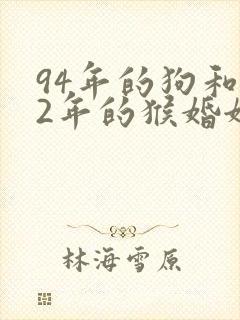 94年的狗和
2年的猴婚
林海雪原